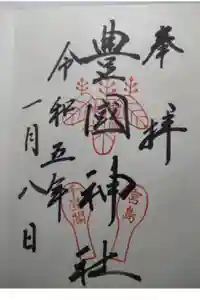 奉拝
豊國神社
令和五年
一月八日
宮島